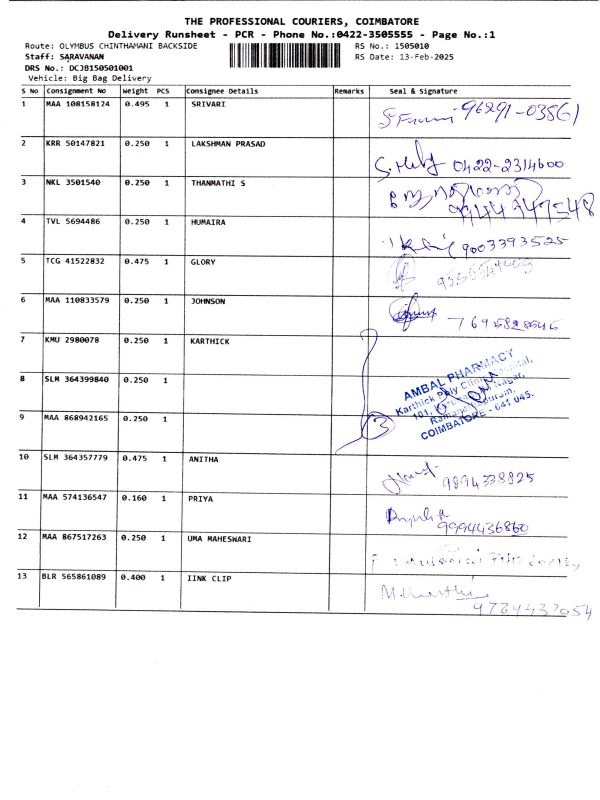 THE PROFESSIONAL COURIERS, COIMBATORE
Delivery Runsheet - PCR - Phone No.:0422-3505555 - Page No.:1
Route: OLYMBUS CHINTHAMANI BACKSIDE RS No.: 1505010
Staff: SARAVANAN RS Date: 13-Feb-2025
DRS No.: DCJB150501001
Vehicle: Big Bag Delivery
S No Consignment No Weight PCS Consignee Details Remarks Seal & Signature
1 MAA 108158124 0.495 1 SRIVARI 96291-03561
2 KRR 50147821 0.250 1 LAKSHMAN PRASAD 0422-2314600
3 NKL 3501540 0.250 1 THANMATHI S
9944947548
4 TVL 5694486 0.250 1 HUMAIRA 9003393525
5 TCG 41522832 0.475 1 GLORY
6 MAA 110833579 0.250 1 JOHNSON 7695828546
7 KMU 2980078 0.250 1 KARTHICK
AMBAL PHARMACY
Karthick Poly Clinic Hospital,
8 SLM 364399840 0.250 1
101, Nagar,
Ramanathapuram,
COIMBATORE - 641 045.
9 MAA 868942165 0.250 1 3
10 SLM 364357779 0.475 1 ANITHA 9894338825
11 MAA 574136547 0.160 1 PRIYA
9994436860
12 MAA 867517263 0.250 1 UMA MAHESWARI
13 BLR 565861089 0.400 1 IINK CLIP
9789432054